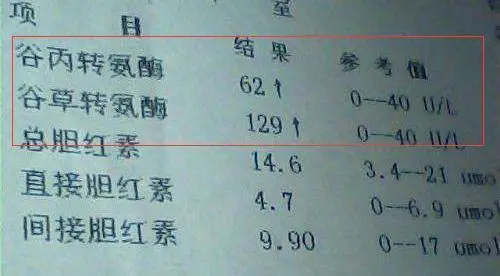 项 目 结 果 参 考 值
谷丙转氨酶 62↑ 0--40 U/L
谷草转氨酶 129↑ 0--40 U/L
总胆红素 14.6 3.4--21 umol
直接胆红素 4.7 0--6.9 umol
间接胆红素 9.90 0--17 umol